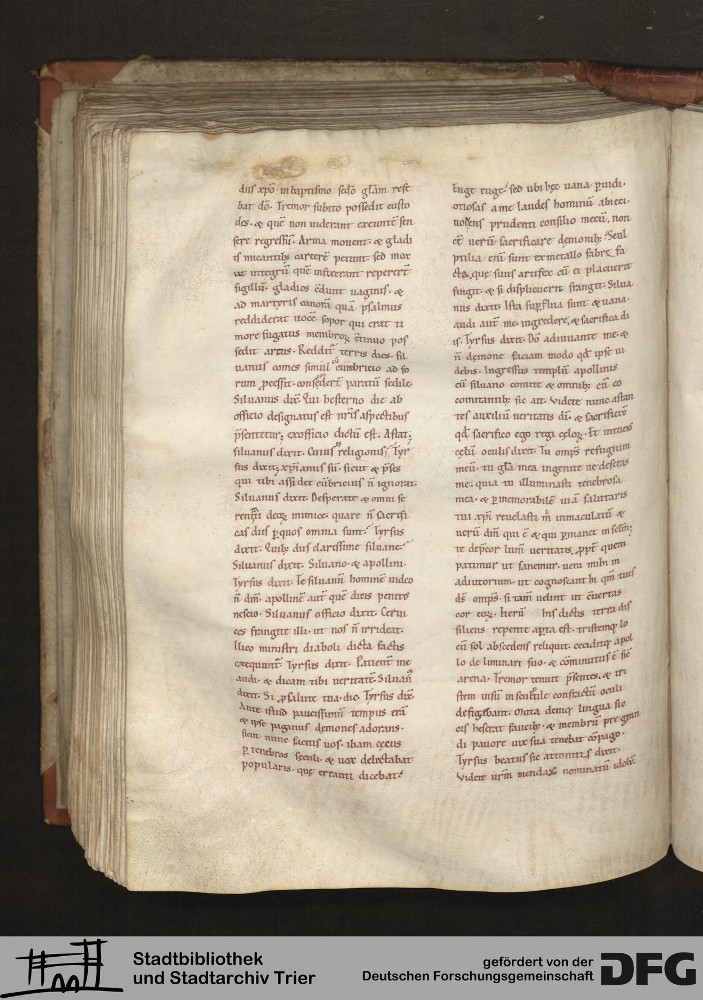 dius xpo inbaptismo sedo glam refe
bat do. Tremor subito possedit custo
des. & que non uiderant exeunte sen
sere regressu. Arma mouent. & gladi
is micantib; carcere petunt. sed mox
ut integru que infixerant reperert
sigillu. gladios c̄dunt uaginis. &
ad martyris canora qua psalmus
reddiderat uoce. sopor qui erat ti
more fugatus membror, c̄tinuo pos
sedit artus. Reddit terris dies. sil
uanus comes simul cumbricio ad fo
rum pcessit. consederet paratu sedile.
Siluanus dix. Qui hesterno die ab
officio designatus est nris aspectibus
psentetur; exofficio dictu est. Astat;
siluanus dixit. Cuius religionis; Tyr
sus dixit; xpianus su. sicut & pses
qui tibi assidet cubricius n ignorat.
Siluanus dixit. Desperate & omni se
deor, inimice. quare n sacrifi
cas diis p quos omnia sunt; Tyrsus
dixit. Quib; diis clarissime siluane;
Siluanus dixit. Siluano. & apollini.
Tyrsus dixit. Te siluanu homine uideo
n dm. apolline aut que dicis penitus
nescio. Siluanus officio dixit. Cerui
ces frangite illi. ut nos n irrideat.
Ilico ministri diaboli dicta factis
exequunt. Tyrsus dixit. Patient me
audi. & dicam tibi ueritate. Siluan
dixit. Si p salute tua. dic. Tyrsus dix.
Ante istud paucissimu tempus era
& ipse paganus demones adorans.
sicut nunc facitis uos. ibam cecus
p tenebras seculi. & uox delectabat
popularis. que erranti dicebat;
Euge euge; sed ubi hec uana puidi.
otiosas a me laudes hominu abieci.
uolens prudenti consilio mecu. non
ee ueru sacrificare demonib; Scul
ptilia eni sunt ex metallo fabre fa
cta, que suus artifex cu ei placuerit
fingit. & si displicuerit frangit. Silua
nus dixit. Ista supflua sunt & uana.
audi aut me. ingredere, & sacrifica di
is. Tyrsus dixit. Do adiuuante me. &
n demone faciam modo qd ipse ui
debis. Ingressus templu apollinis
cu siluano comite & omnib; cu eo
comitantib; sic ait. Videte nunc astan
tes auxiliu ueritatis di. & sacrificiu
qd sacrifico ego regi celor,. Et intuens
celu oculis dixit. Tu omps refugium
meu. tu gla mea ingenite ne deseras
me. quia tu illuminasti tenebrosa
mea. & p memorabile uia salutaris
tui xpi reuelasti m inmaculatu &
ueru dm. qui e & qui pmanet in secla;
te depcor lum ueritatis. ppt quem
patimur ut sanemur. ueni mihi in
adiutorium. ut cognoscant hi qm tu es
ds omps. si tam uelint ut c̄uertas
cor eor,. Iteru his dictis terra dis
siliens repente apta est. tristemq; lo
cu sol abscedens reliquit. ceciditq; apol
lo de liminari suo. & cōminutus e sic
arena. Tremor tenuit psentes. & tri
stem uisu in seuerale constrictu oculi
defigebant. Muta deniq; lingua sic
eis heserat faucib; & membru pre gran
di pauore uix sua tenebat c̄pago.
Tyrsus beatus sic attonitis dixit.
Videte urm mendax nominatu idolu.
Stadtbibliothek
und Stadtarchiv Trier
gefördert von der
Deutschen Forschungsgemeinschaft
DFG